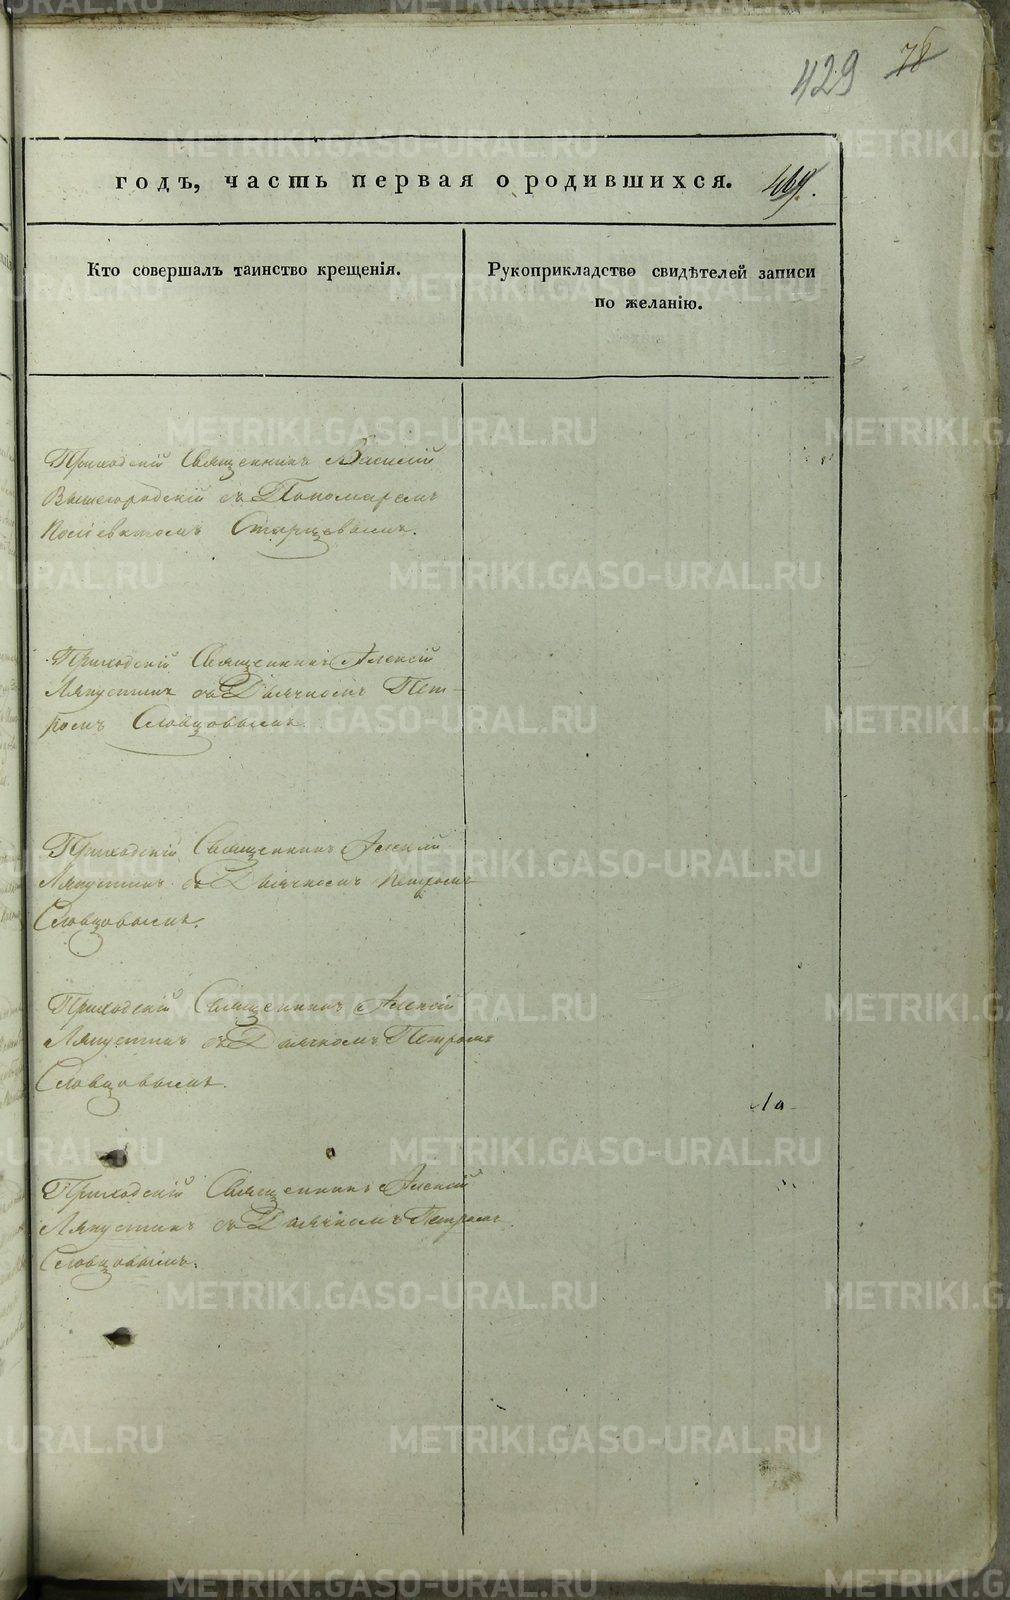 429 78
годъ, часть первая о родившихся. 469.
Кто совершалъ таинство крещенія.
Рукоприкладство свидѣтелей записи
по желанію.
Приходскій Священникъ Василій
Вышегородскій съ Пономаремъ
Старцевымъ.
Приходскій Священникъ Алексій
Ляпустинъ съ Дьячкомъ Пет-
ромъ Словцовымъ.
Приходскій Священникъ Алексій
Ляпустинъ съ Дьячкомъ Петромъ
Словцовымъ.
Приходскій Священникъ Алексій
Ляпустинъ съ Дьячкомъ Петромъ
Словцовымъ.
Приходскій Священникъ Алексій
Ляпустинъ съ Дьячкомъ Петромъ
Словцовымъ.
METRIKI.GASO-URAL.RU